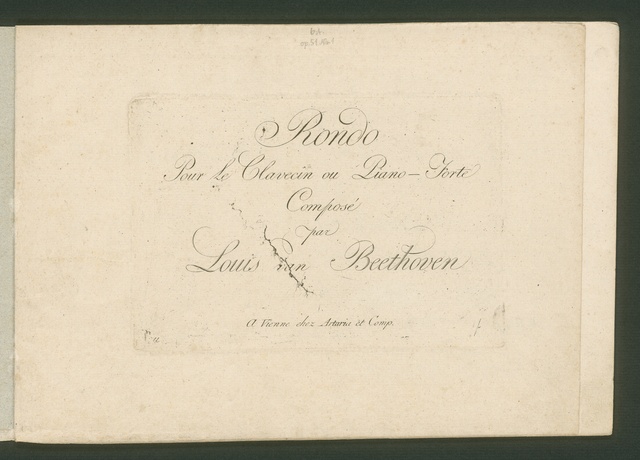 Rondo
Pour le Clavecin ou Piano-Forte
Composé
par
Louis van Beethoven
A Vienne chez Artaria et Comp.